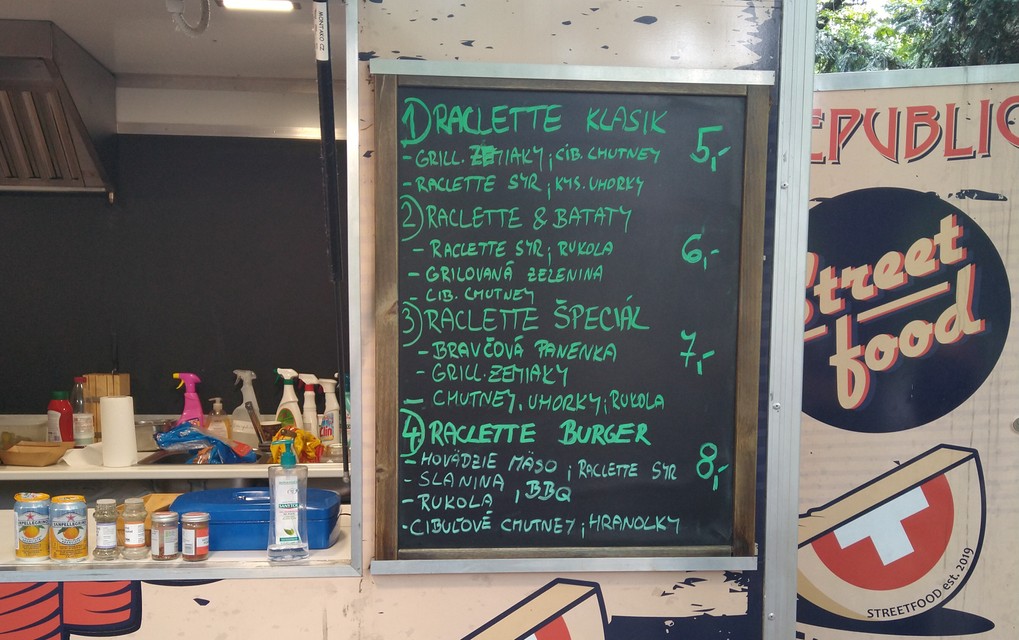 1) RACLETTE KLASIK 5,-
- GRILL. ZEMIAKY; CIB. CHUTNEY
- RACLETTE SYR; KYS. UHORKY
2) RACLETTE & BATATY 6,-
- RACLETTE SYR; RUKOLA
- GRILOVANÁ ZELENINA
- CIB. CHUTNEY
3) RACLETTE ŠPECIÁL 7,-
- BRAVČOVÁ PANENKA
- GRILL. ZEMIAKY
- CHUTNEY, UHORKY; RUKOLA
4) RACLETTE BURGER 8,-
- HOVÄDZIE MÄSO; RACLETTE SYR
- SLANINA ; BBQ
- RUKOLA
- CIBUĽOVÉ CHUTNEY; HRANOLKY
EPUBLIC
Street
food
STREETFOOD est. 2019
SANPELLEGRINO
SANPELLEGRINO
SANYTOL
Clin